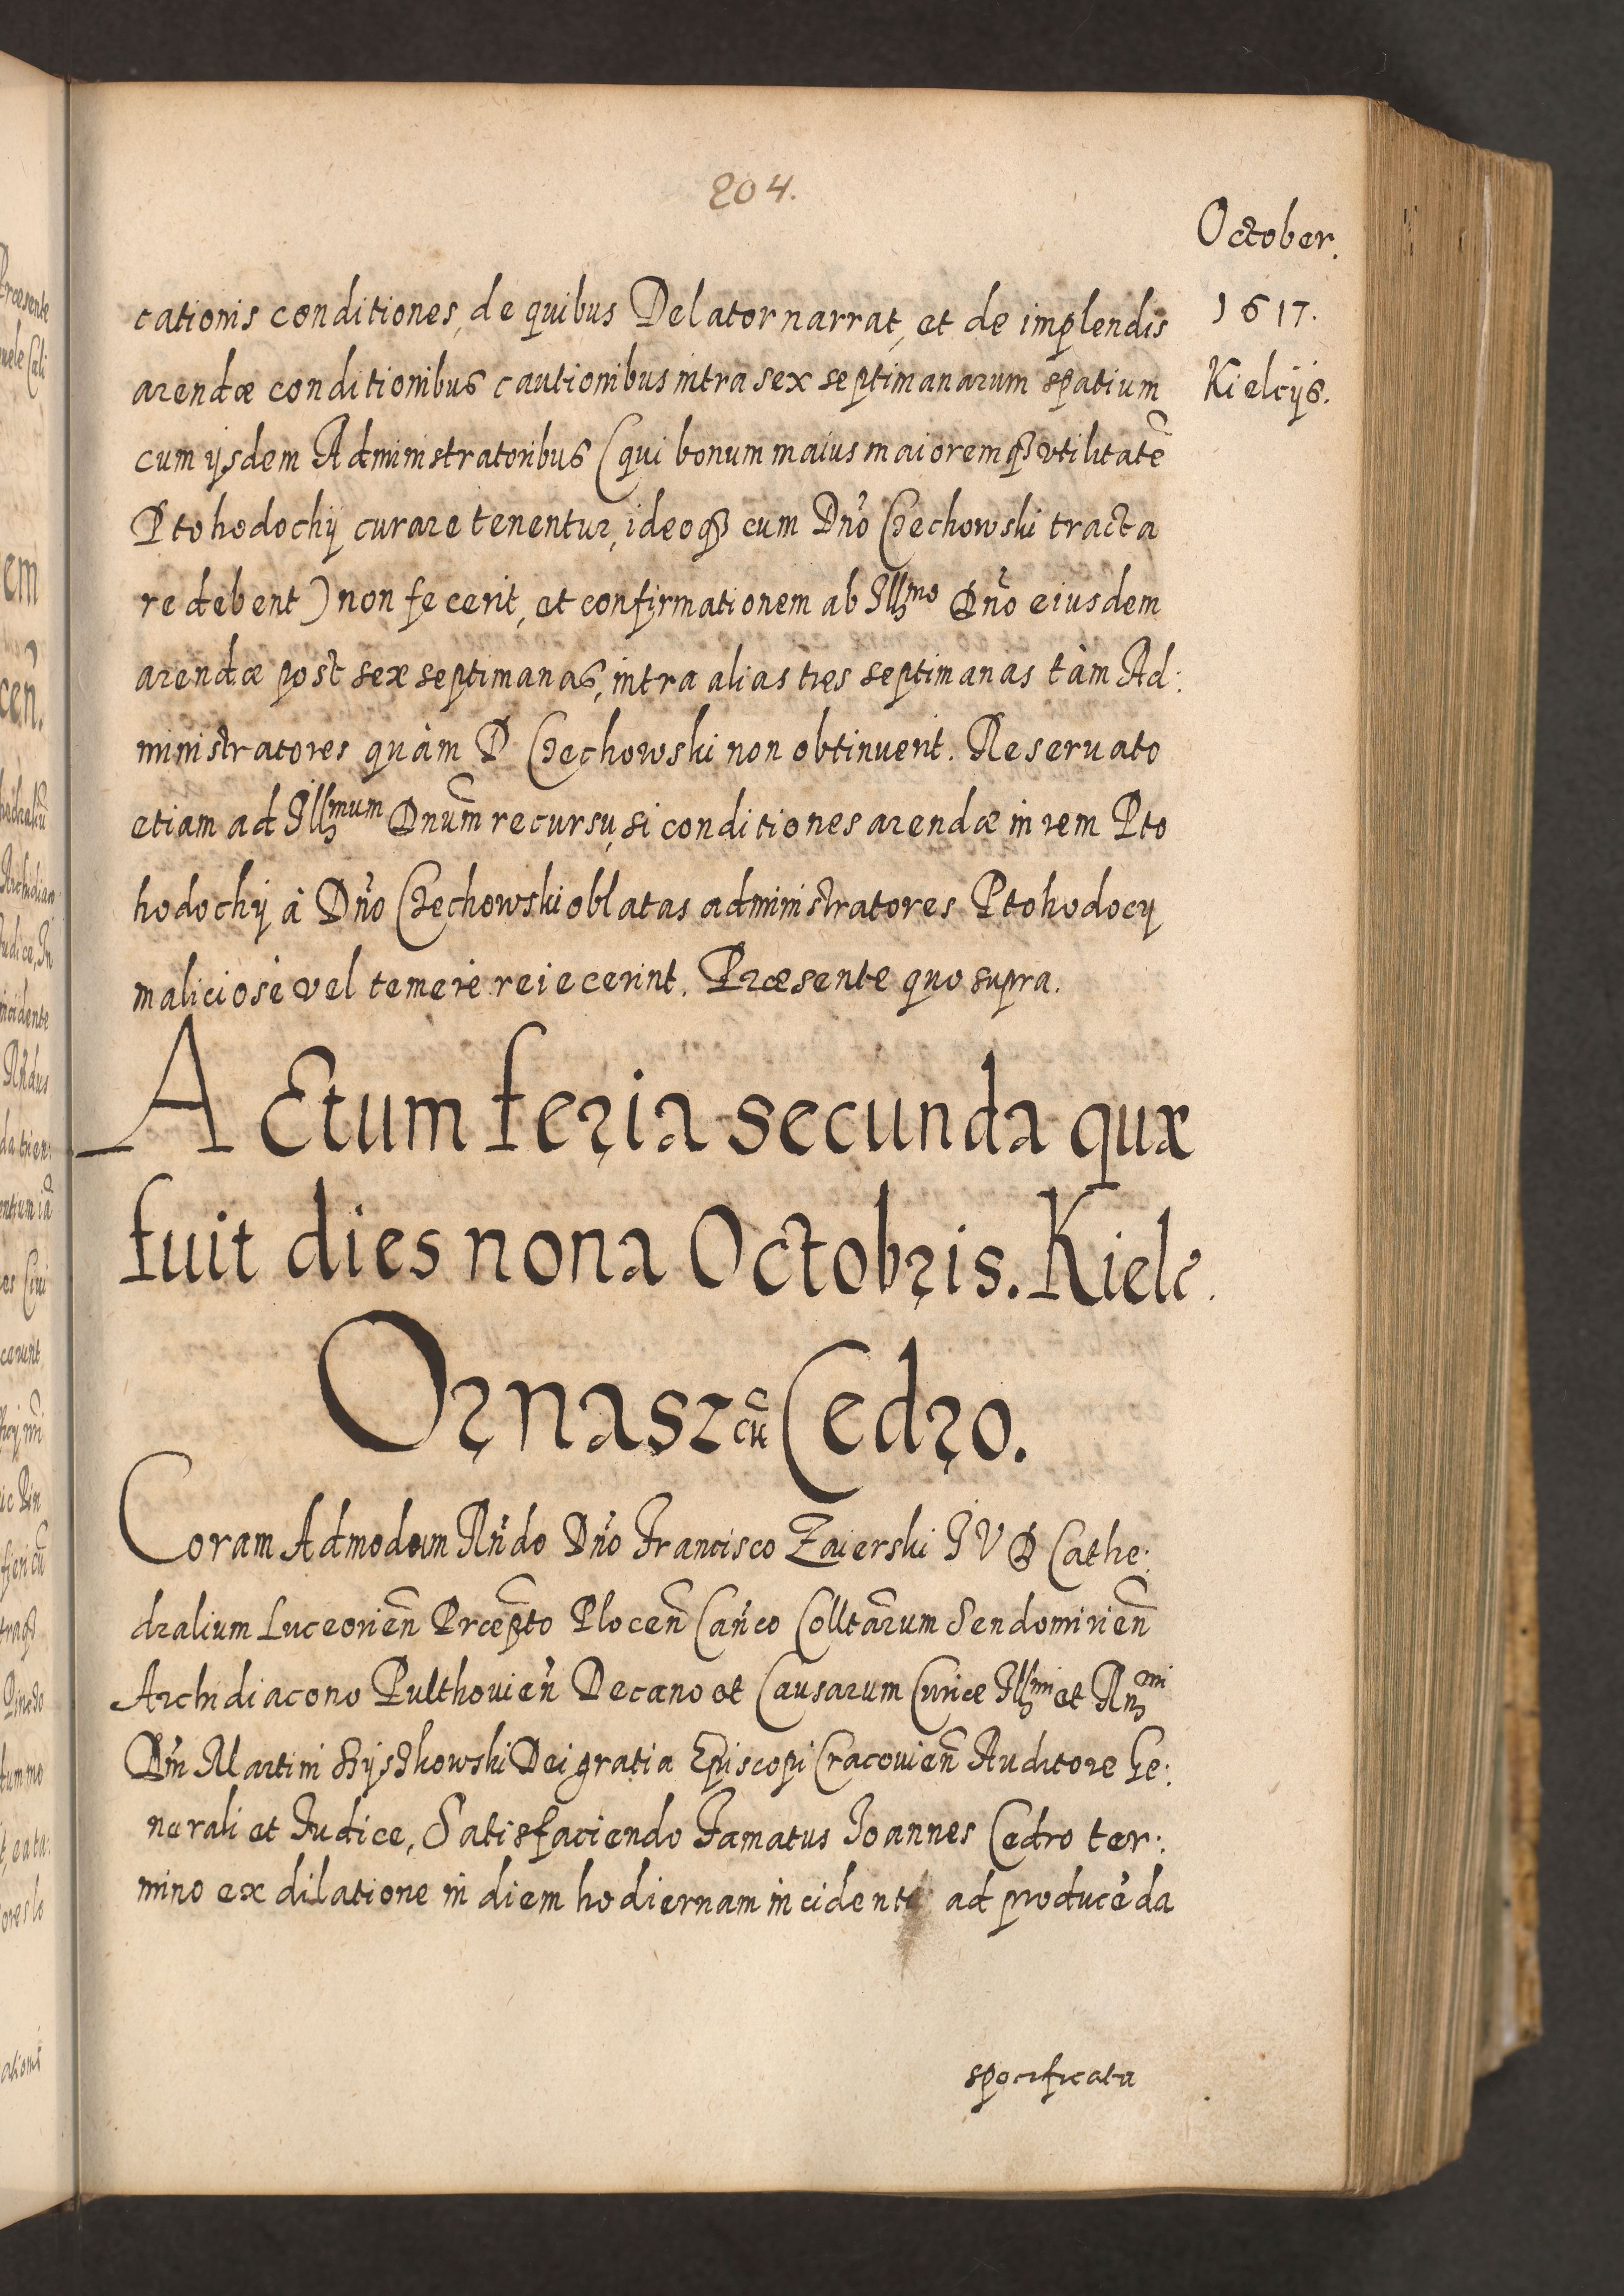 204.
October.
1617.
Kielcijs.
cationis conditiones, de quibus Delator narrat, et de implendis
arendæ conditionibus cautionibus intra sex septimanarum spatium
cum ijsdem Administratoribus (qui bonum maius maioremq3 vtilitatẽ
Ptohodochij curare tenentur, ideoq3 cum Dño Czechowski tracta
re debent) non fecerit, et confirmationem ab Illmo Dño eiusdem
arendæ post sex septimanas, intra alias tres septimanas tàm Ad:
ministratores quàm D Czechowski non obtinuerit. Reseruato
etiam ad Illmum Dnum̃ recursu, si conditiones arendæ in rem Pto
hodochij à Dño Czechowski oblatas administratores Ptohodocij
maliciosè vel temerè reiecerint. Præsente quo supra.
ACtum feria secunda quæ
fuit dies nona Octobris. Kielc.
Ornasz cũ Cedro.
Coram Admodum Rñdo Dño Francisco Zaierski IVD Cathe:
dralium Luceorieñ Præpto Ploceñ Cañco Colltarum Sendomirieñ
Archidiacono Pulthouieñ Decano et Causarum Curiæ Illmi et Rmi
Dñi Martini Szyszkowski Dei gratia Episcopi Cracouieñ Auditore Ge:
nerali et Iudice, Satisfaciendo Famatus Ioannes Cedro ter:
mino ex dilatione in diem hodiernam incidente ad producẽda
specificata